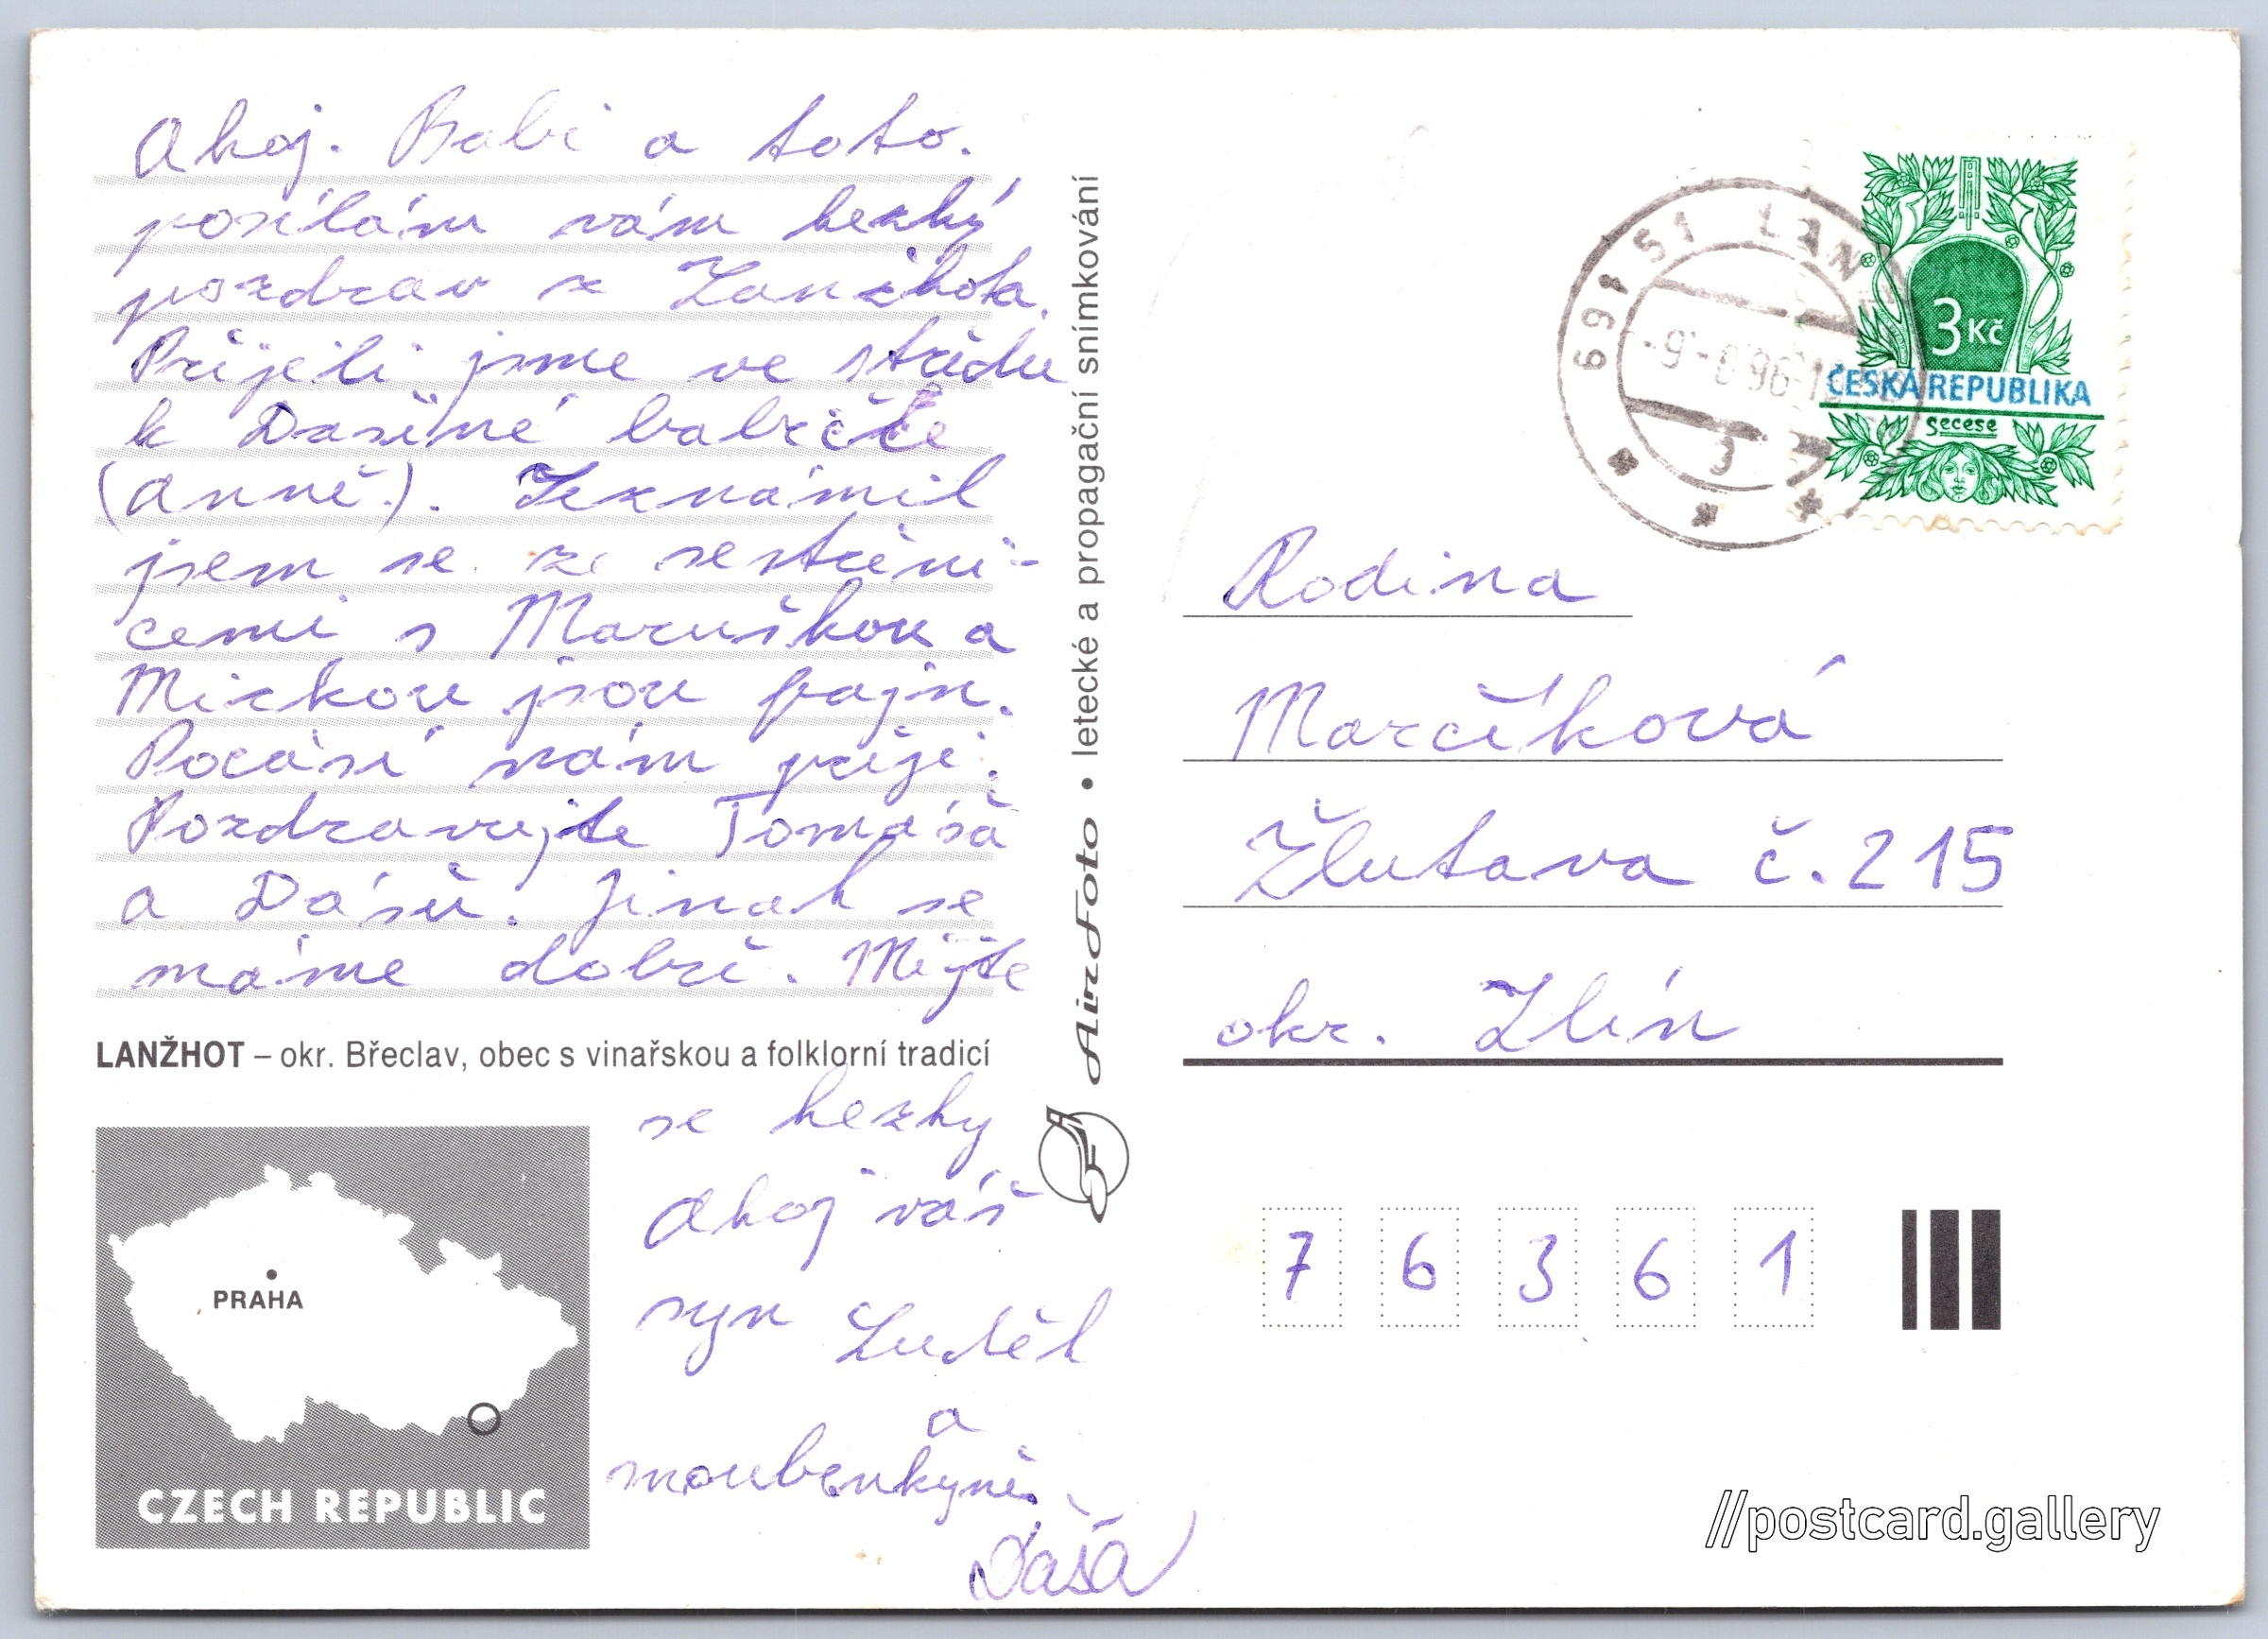 Ahoj. Babi a toto.
posílám vám hezký
pozdrav z Lanžhota.
Přijeli jsme ve středu
k Dašiné babičče
(Anně). Seznámil
jsem se ze sestřeni-
cemi s Maruškou a
Mizkou jsou fajn.
Pocásí nám přeje.
Pozdravujte Tomáša
a Dášu. Jinak se
máme dobrě. Mějte
LANŽHOT – okr. Břeclav, obec s vinařskou a folklorní tradicí
se hezky
Ahoj váš
syn Luděk
a
moubenkyně
Dáša
PRAHA
CZECH REPUBLIC
AirFoto • letecké a propagační snímkování
691 51 LANŽ
3
3 Kč
ČESKÁ REPUBLIKA
secese
Rodina
Marčíková
Žlutava č. 215
okr. Zlín
7 6 3 6 1
//postcard.gallery